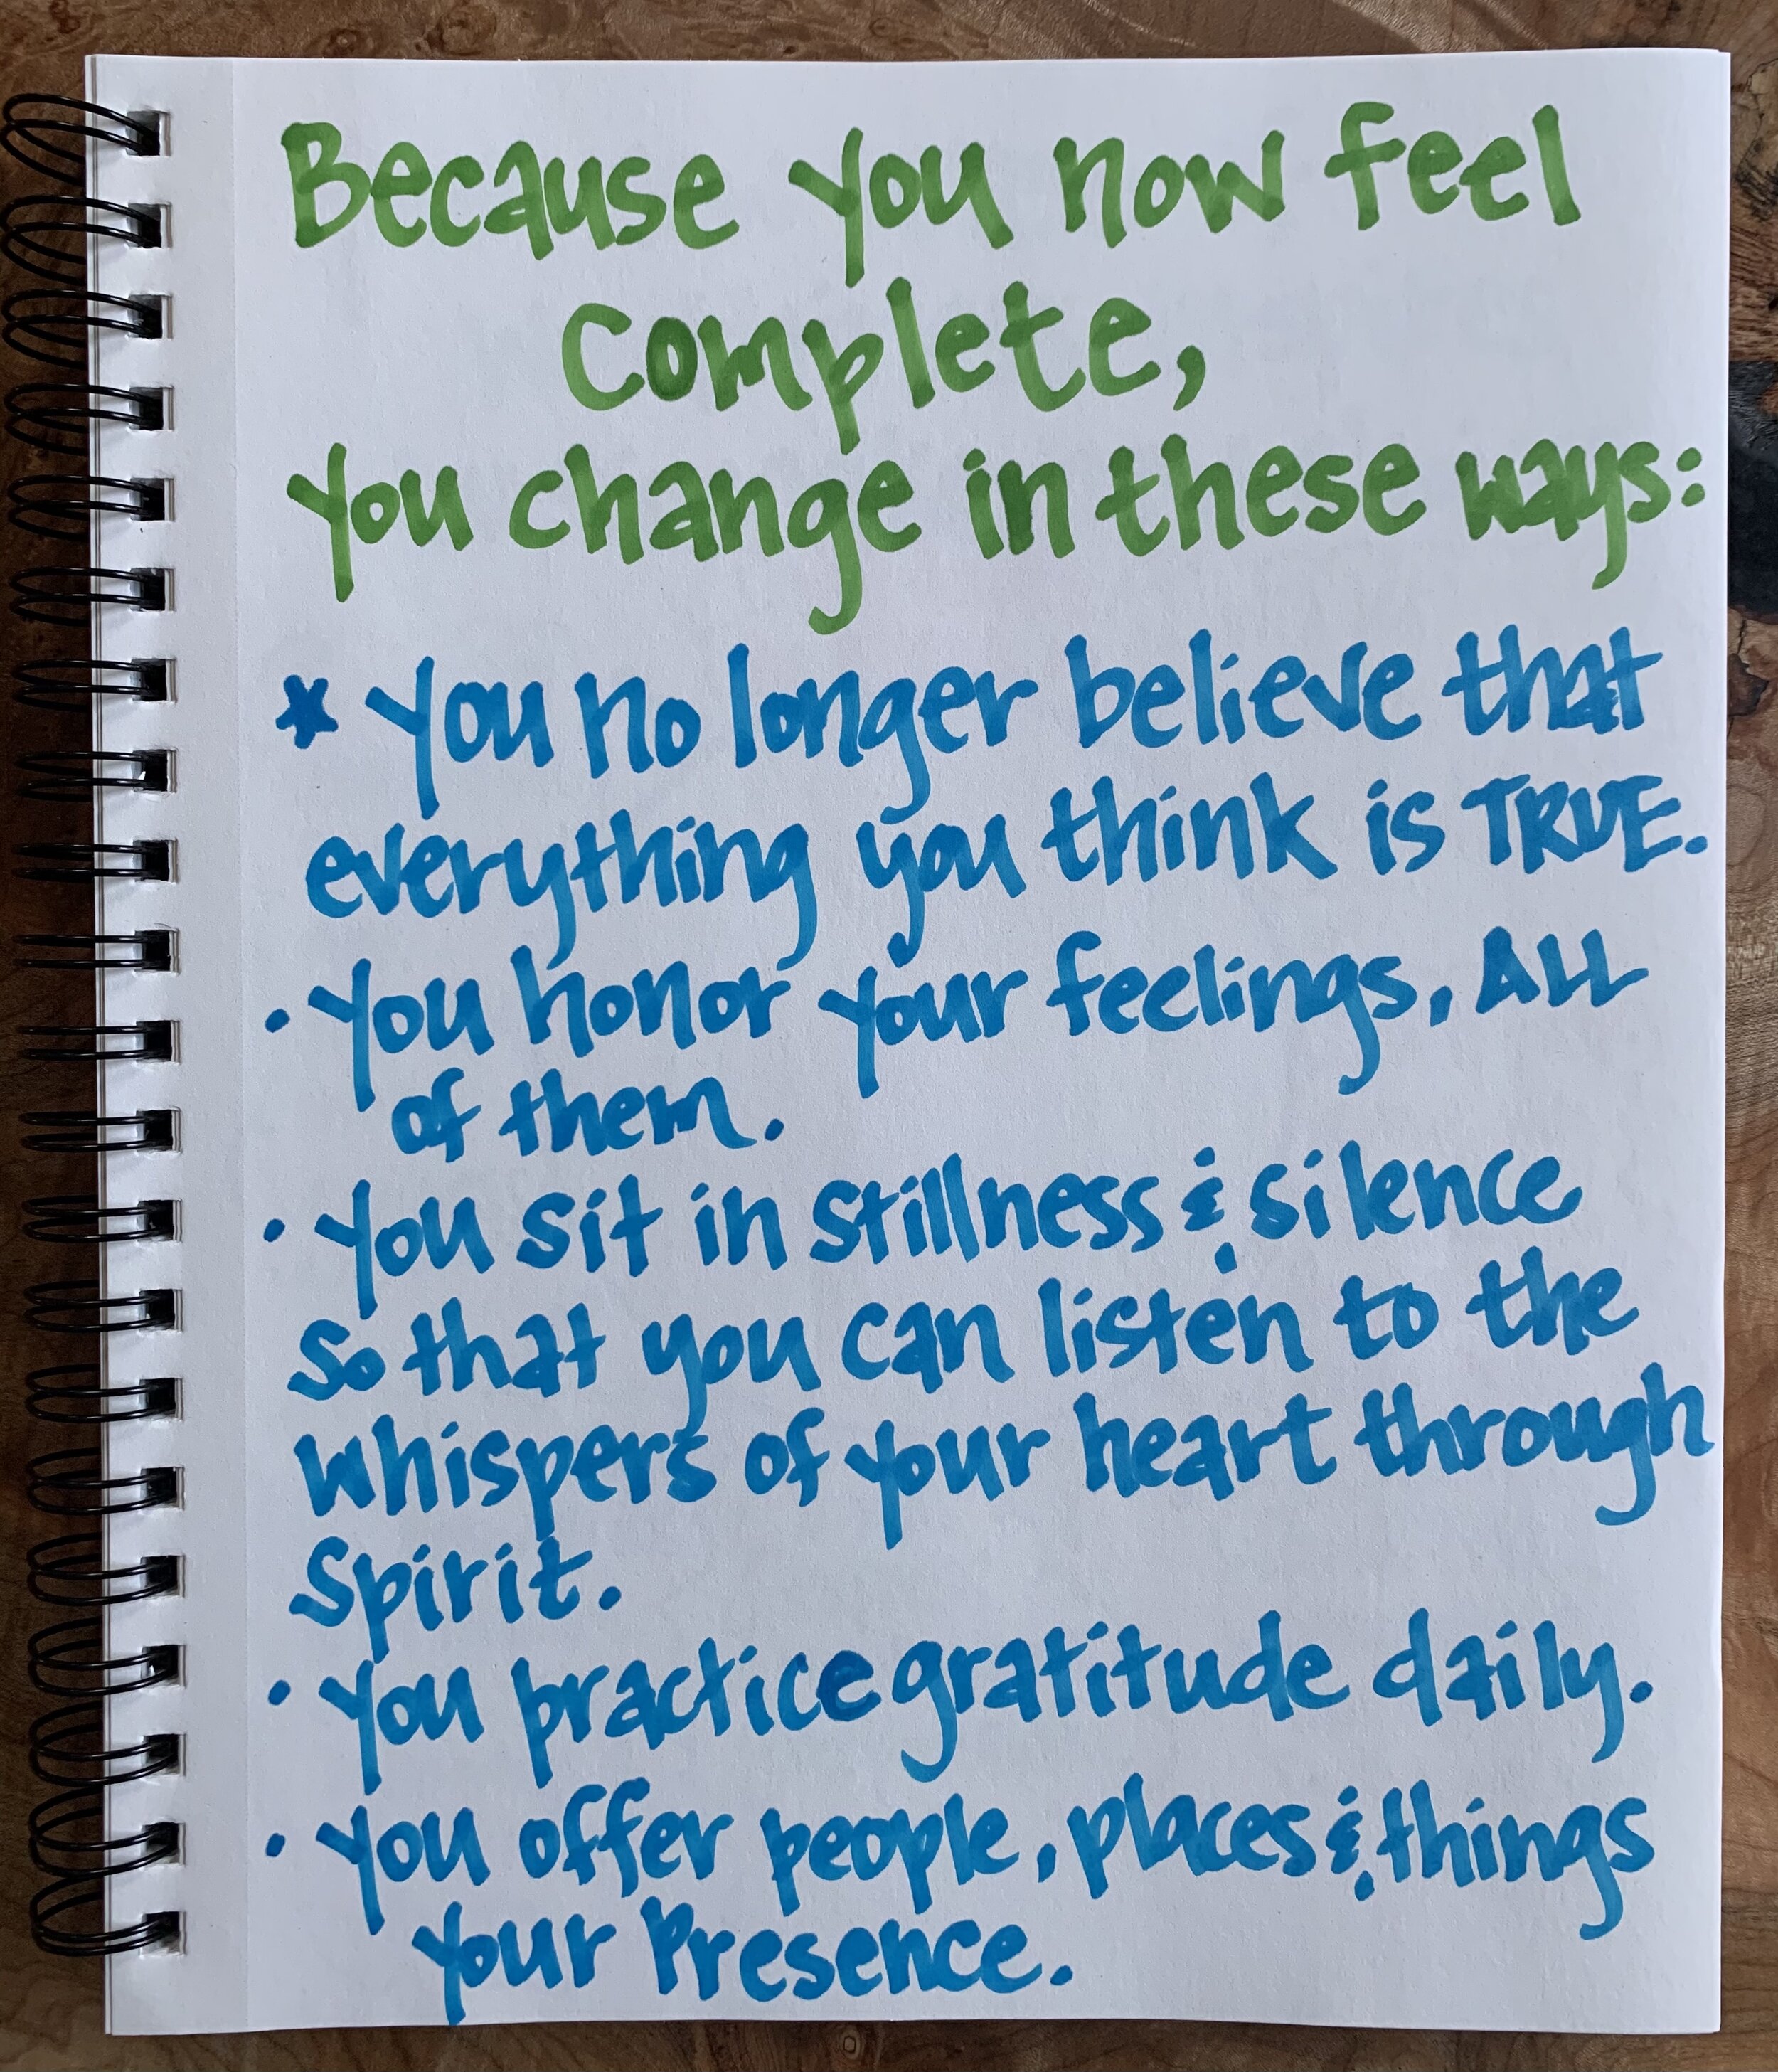 Because you now feel
Complete,
You change in these ways:
* You no longer believe that
everything you think is TRUE.
• You honor your feelings, ALL
of them.
• You sit in stillness & silence
So that you can listen to the
whispers of your heart through
Spirit.
• You practice gratitude daily.
• You offer people, places & things
Your Presence.